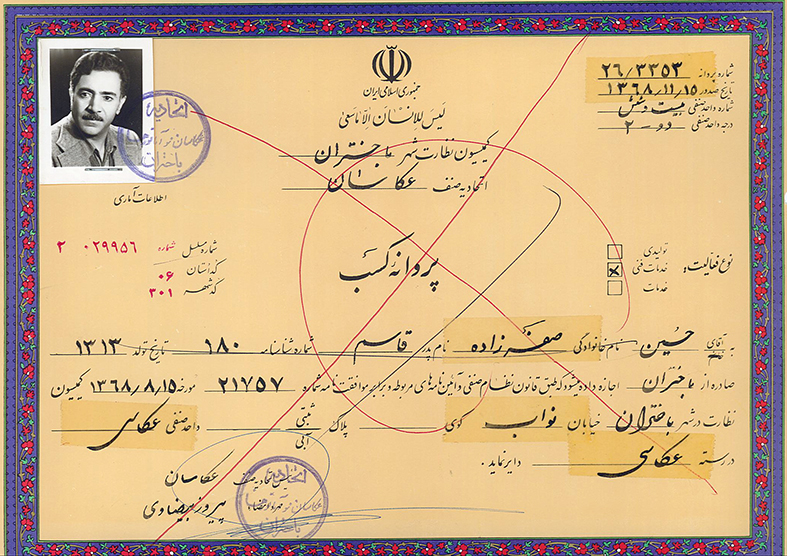 جمهوری اسلامی ایران
لیس للانسان الا ماسعی
کمیسیون نظارت شهر باختران
اتحادیه صنف عکاسان
شماره پروانه ۲۶/۳۳۵۳
تاریخ صدور ۱۳۶۸/۱۱/۱۵
شماره واحد صنفی بیست و شش
درجه واحد صنفی دو - ۲
اتحادیه
عکاسان
باختران
اطلاعات آماری
شماره مسلسل شماره ۰۲۹۹۵۶ ۲
کد استان ۰۶
کد شهر ۳۰۱
پروانه کسب
نوع فعالیت:
تولیدی
خدمات فنی
خدمات
به آقای حسین نام خانوادگی صفرزاده نام پدر قاسم شماره شناسنامه ۶۸۰ تاریخ تولد ۱۳۱۳
صادره از باختران اجازه داده میشود طبق قانون نظام صنفی و آئین نامه های مربوطه و برابر موافقت نامه شماره ۲۱۷۵۷ مورخه ۱۳۶۸/۸/۱۵ کمیسیون
نظارت در شهر باختران خیابان نواب کوی پلاک ثبتی آبی واحد صنفی عکاسی
در رسته عکاسی دایر نماید.
رئیس اتحادیه صنف عکاسان
پیروز بیضاوی
اتحادیه
عکاسان
باختران